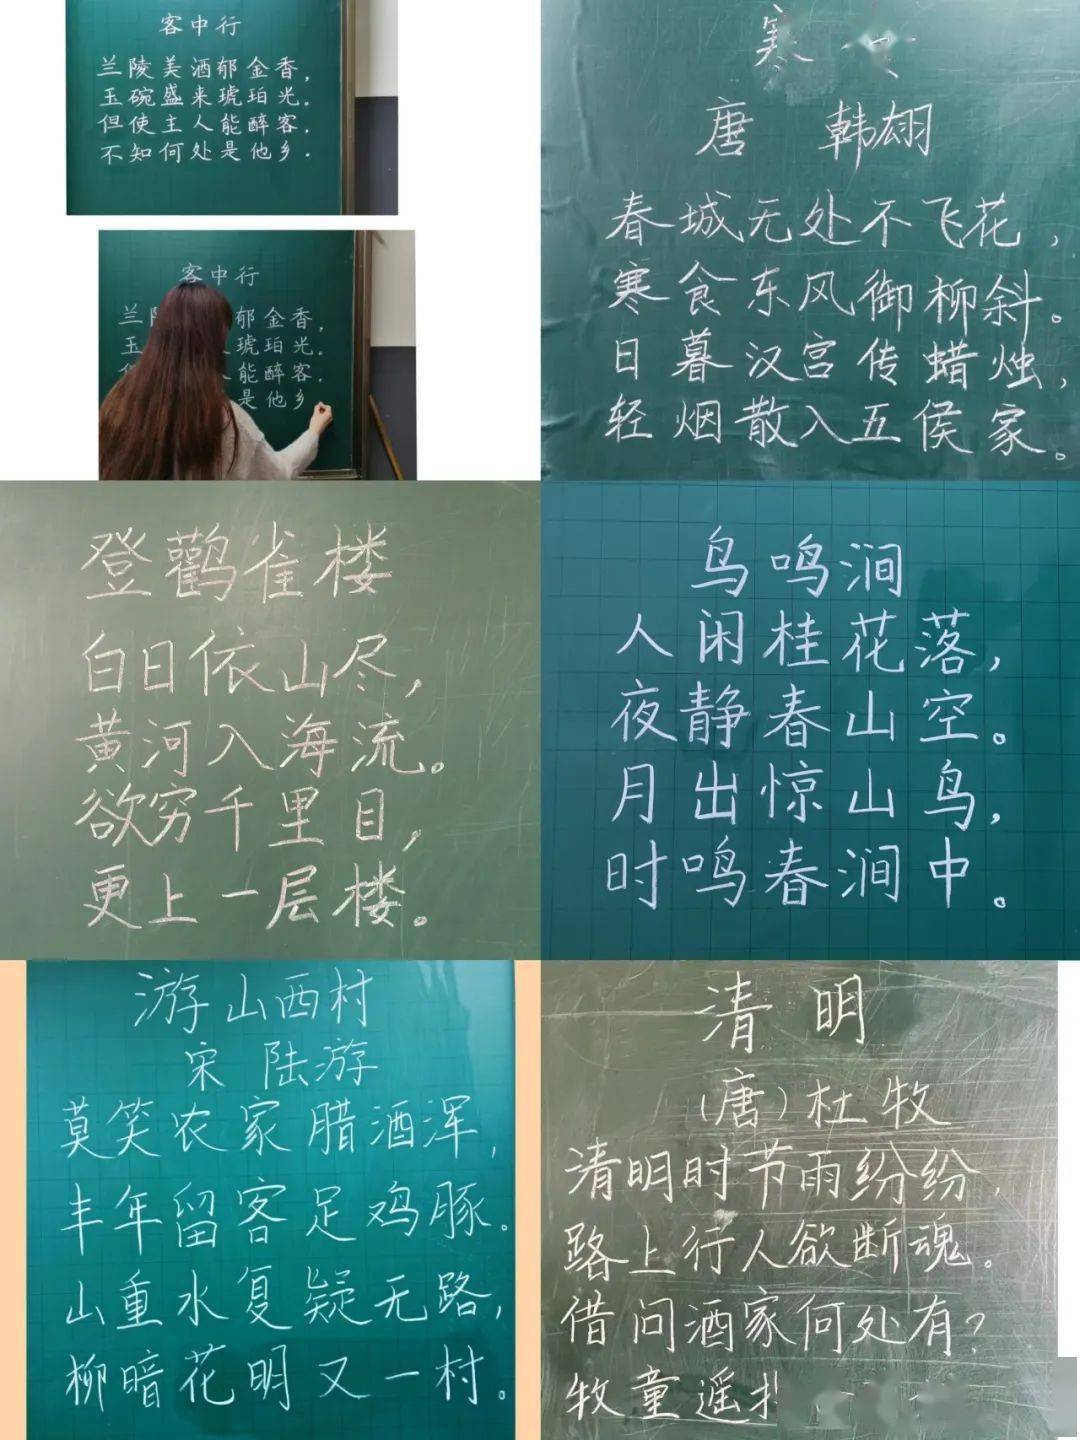 客中行
兰陵美酒郁金香，
玉碗盛来琥珀光。
但使主人能醉客，
不知何处是他乡．
客中行
兰陵 郁金香，
玉 琥珀光．
能醉客．
是他乡
寒
唐 韩翃
春城无处不飞花，
寒食东风御柳斜。
日暮汉宫传蜡烛，
轻烟散入五侯家。
登鸛雀楼
白日依山尽，
黄河入海流。
欲穷千里目，
更上一层楼。
鸟鸣涧
人闲桂花落，
夜静春山空。
月出惊山鸟，
时鸣春涧中。
游山西村
宋 陆游
莫笑农家腊酒浑，
丰年留客足鸡豚。
山重水复疑无路，
柳暗花明又一村。
清明
（唐）杜牧
清明时节雨纷纷，
路上行人欲断魂。
借问酒家何处有？
牧童遥